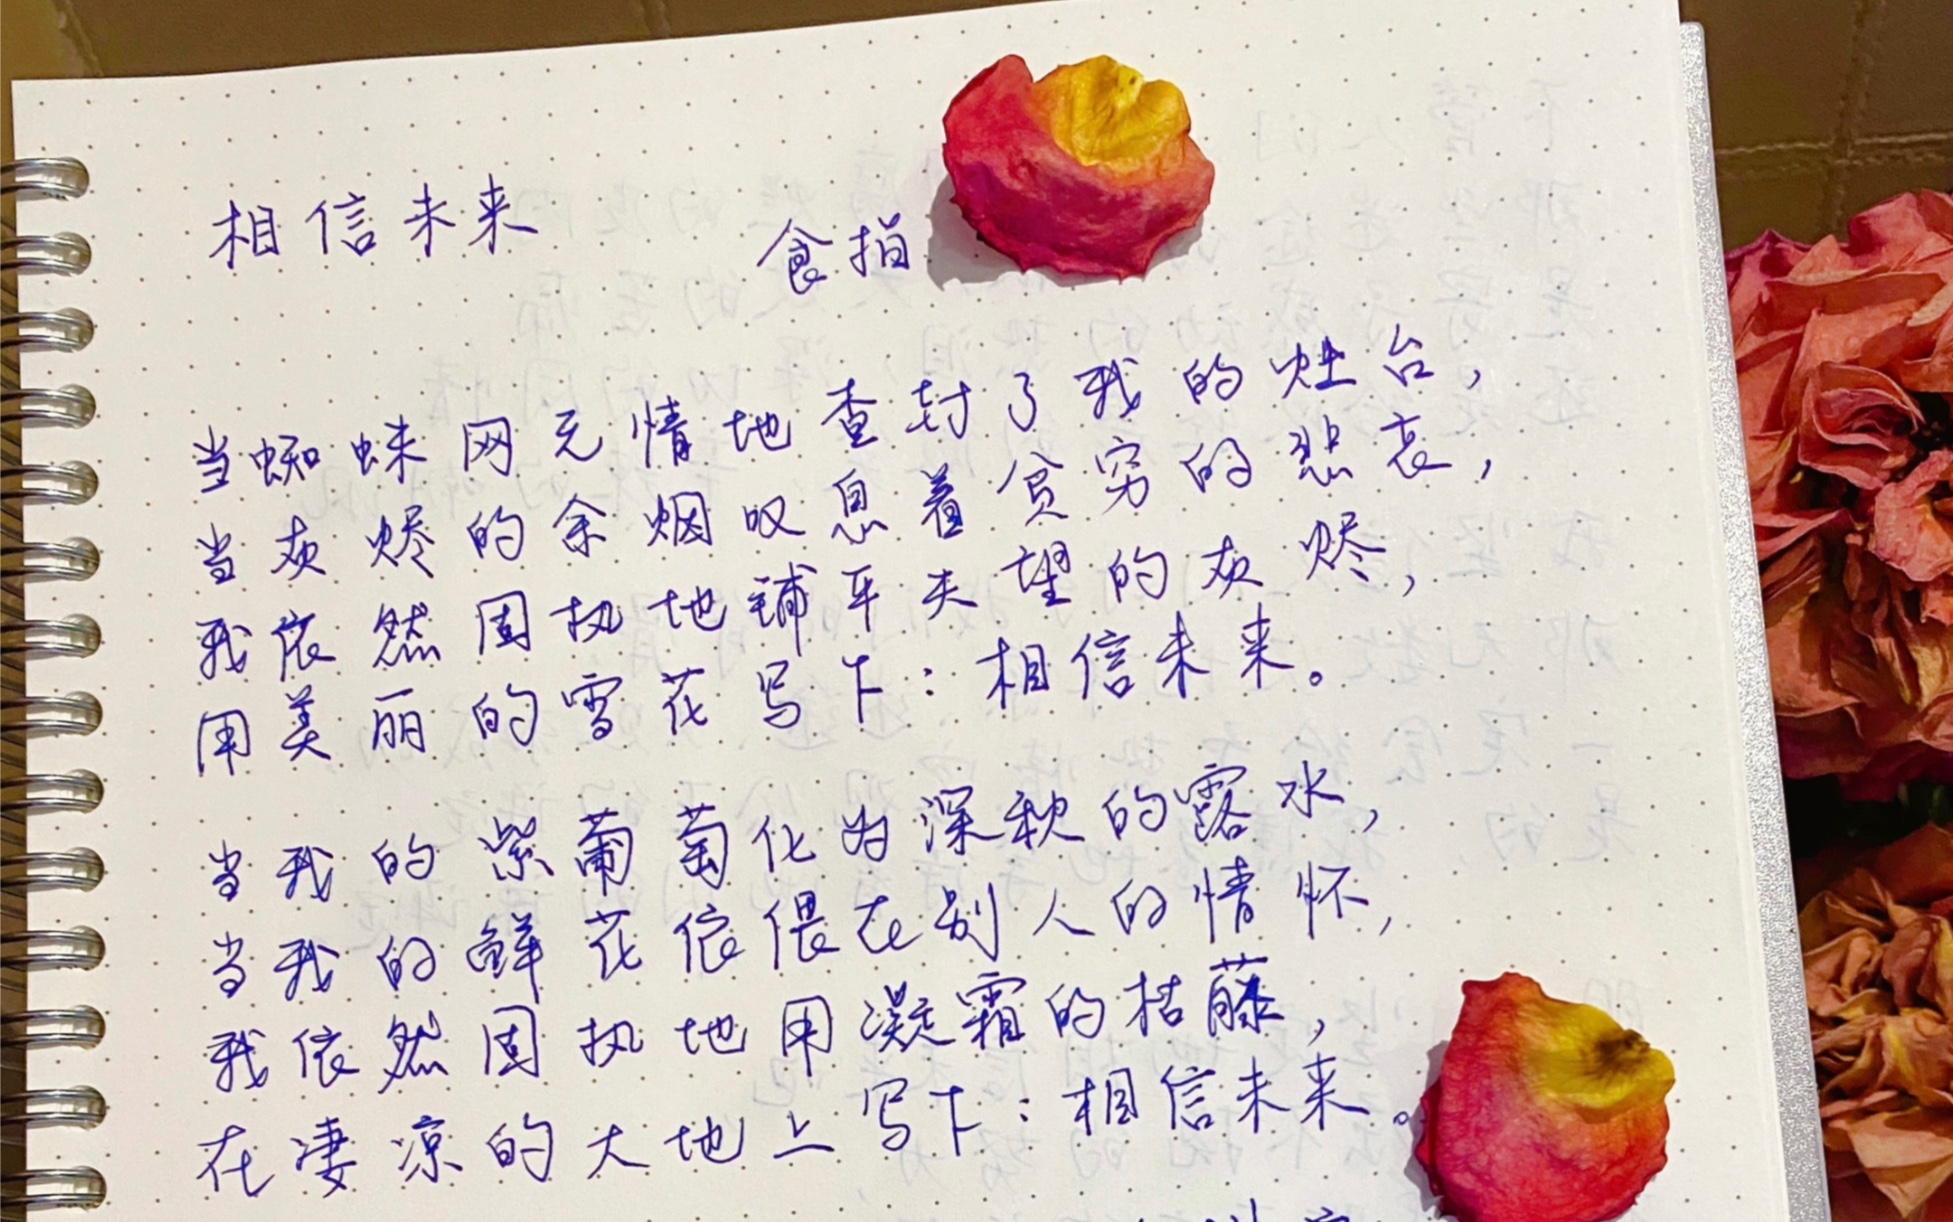 相信未来
食指
当蜘蛛网无情地查封了我的灶台，
当灰烬的余烟叹息着贫穷的悲哀，
我依然固执地铺平失望的灰烬，
用美丽的雪花写下：相信未来。
当我的紫葡萄化为深秋的露水，
当我的鲜花依偎在别人的情怀，
我依然固执地用凝霜的枯藤，
在凄凉的大地上写下：相信未来。